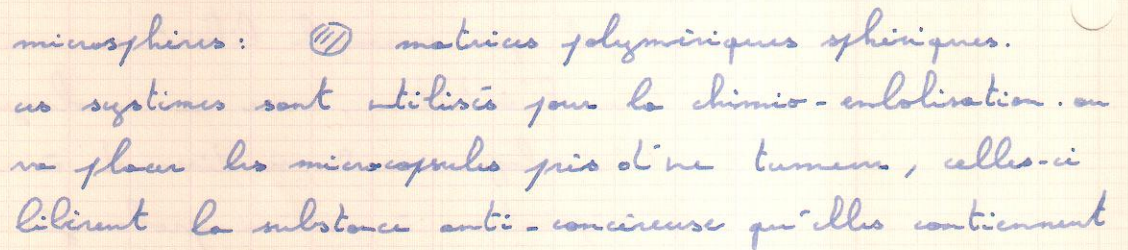 microsphères: matrices polymériques sphériques.
ces systèmes sont utilisés pour la chimio-embolisation. on
va placer les microcapsules près d'une tumeur, celles-ci
libèrent la substance anti-cancéreuse qu'elles contiennent